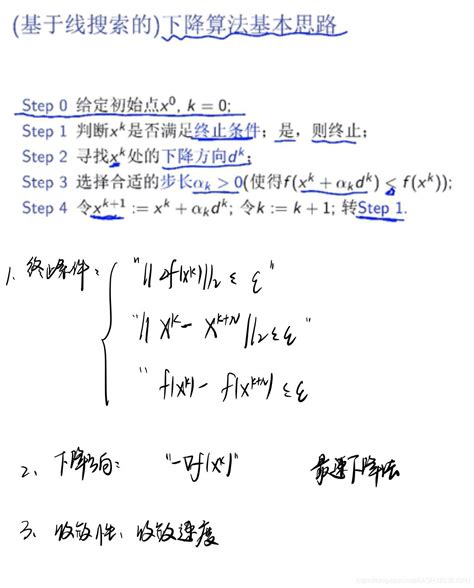 (基于线搜索的)下降算法基本思路
Step 0 给定初始点x⁰, k = 0;
Step 1 判断xᵏ是否满足终止条件：是，则终止；
Step 2 寻找xᵏ处的下降方向dᵏ;
Step 3 选择合适的步长αₖ > 0(使得f(xᵏ + αₖdᵏ) ≤ f(xᵏ));
Step 4 令xᵏ⁺¹ := xᵏ + αₖdᵏ; 令k := k + 1; 转Step 1.
1、终止条件：
"‖∇f(xᵏ)‖₂ ≤ ε"
"‖xᵏ - xᵏ⁺ᴺ‖₂ ≤ ε"
"f(xᵏ) - f(xᵏ⁺ᴺ) ≤ ε
2、下降方向： "-∇f(xᵏ)" 最速下降法
3、收敛性、收敛速度